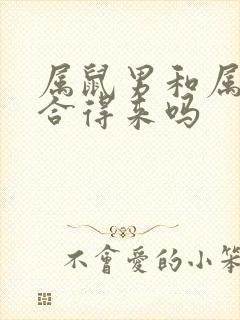 属鼠男和属
合得来吗
不會愛的小笨